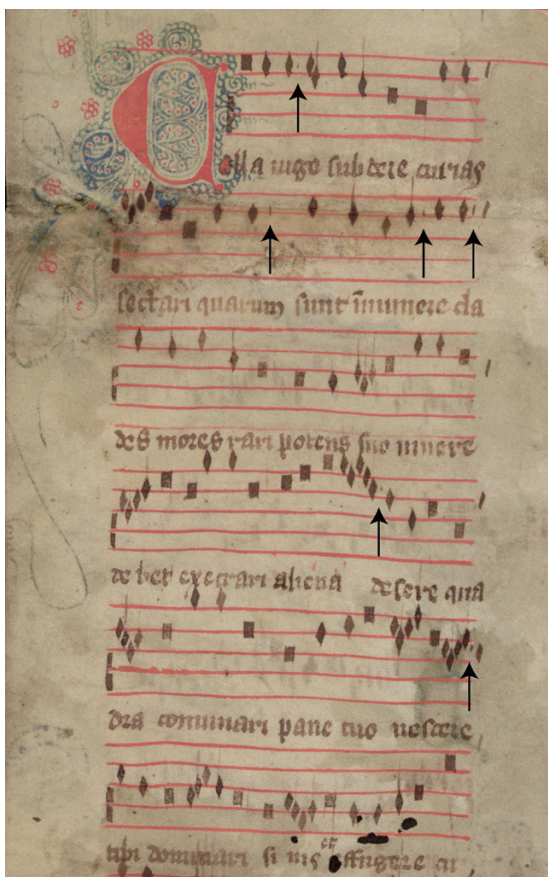 Colla iugo subdere curias
sectari quarum sunt ĩnumere cla
des mores rari potens suo munere
de bet execrari aliena desere qua
dra conuiuari pane tuo uescere
tibi dominari si uis effugere cu